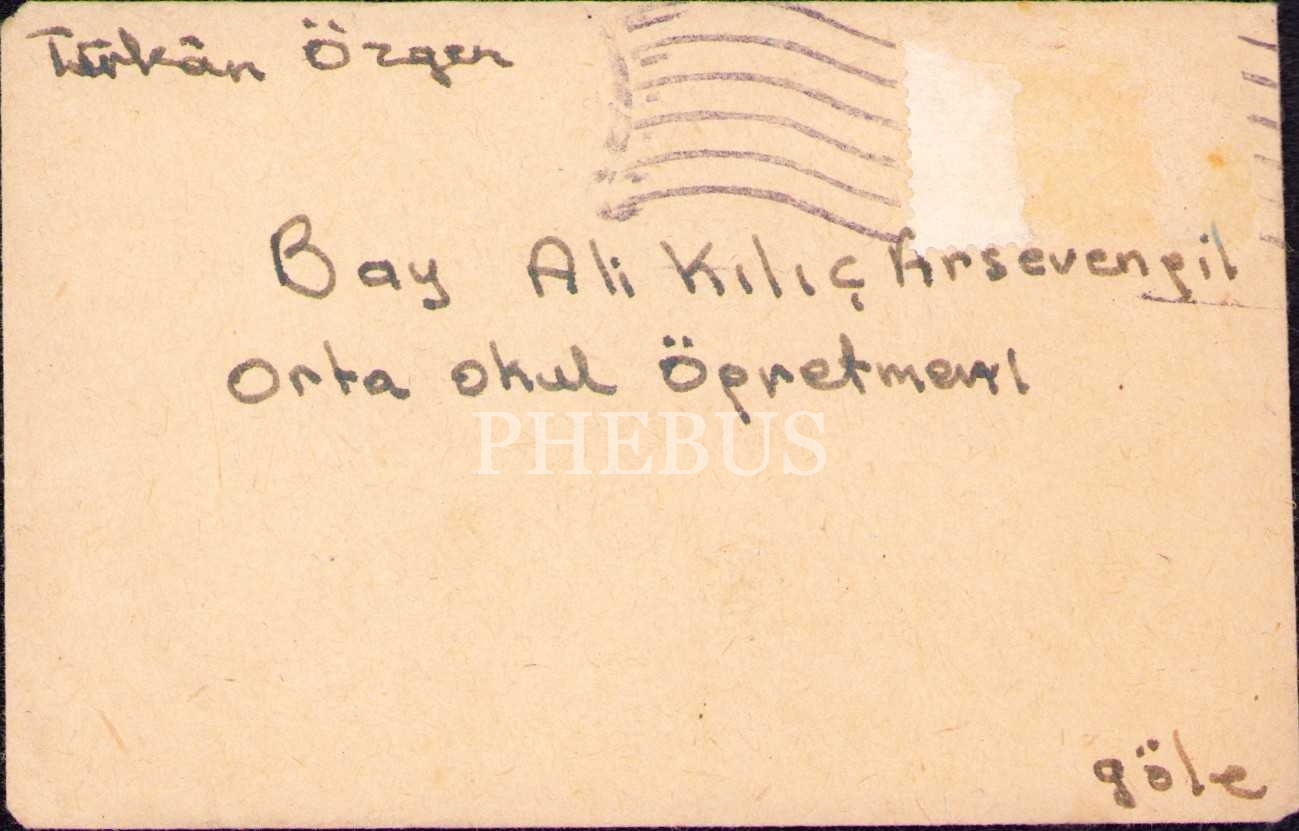 Türkân Özger
Bay Ali Kılıç Arsevengil
Orta okul Ögretmeni
PHEBUS
göle